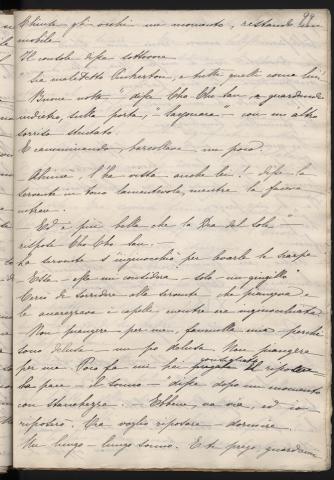 99
Chiuse gli occhi un momento, restando im-
mobile.
Il console disse sottovoce
"Sia maledetto Pinkerton, e tutti quelli come lui"
"Buona notte" disse Cho-Cho-San, e guardando
indietro, sulla porta, "Sayonara" - con un altro
sorriso stentato.
E camminando, barcollava un poco.
- Ahimè, l'ha vista anche lei! disse la
servente in tono lamentevole, mentre la faceva
entrare.
- Ed è più bella che la Dea del Sole" -
rispose Cho-Cho-San. -
La servente s'inginocchiò per levarle le scarpe
- Ella - ella mi considera - solo un gingillo"
Cercò di sorridere alla servente che piangeva e
le accarezzava i capelli, mentre era inginocchiata
- Non piangere per me, fanciulla mia perchè
sono delusa - un po' delusa - Non piangere
per me. Poco fa mi hai consigliato il riposo
la pace - il sonno - disse dopo un momento
con stanchezza. - Ebbene, va via, ed io
riposerò. Ora voglio riposare - dormire.
Un lungo - lungo sonno. E ti prego, guardami